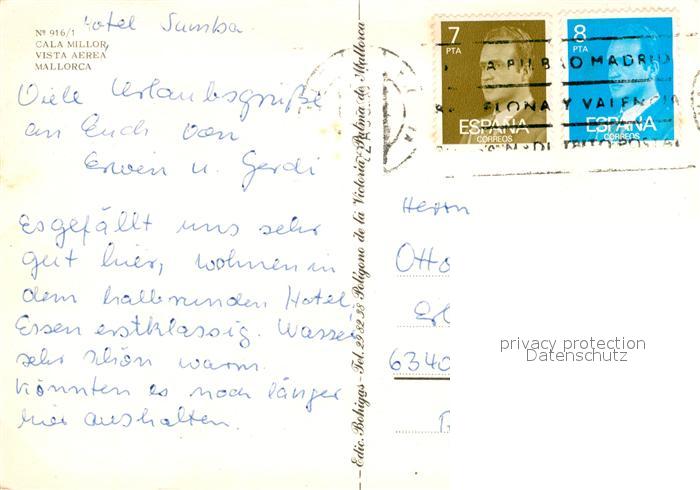 Hotel Sumba
Nº 916/1
CALA MILLOR
VISTA AEREA
MALLORCA
Viele Urlaubsgrüße
an Euch von
Erwin u. Gerdi
Es gefällt uns sehr
gut hier, wohnen in
dem halbrunden Hotel.
Essen erstklassig. Wasser
sehr schön warm.
Könnten es noch länger
hier aushalten.
Edic. Bohigas - Tel. 29 82 38 Polígono de la Victoria - Palma de Mallorca
7
PTA
ESPAÑA
CORREOS
8
PTA
ESPAÑA
CORREOS
A BILBAO MADRID
ELONA Y VALENCIA
DISTRITO POSTAL
Herrn
Otto
6340
privacy protection
Datenschutz